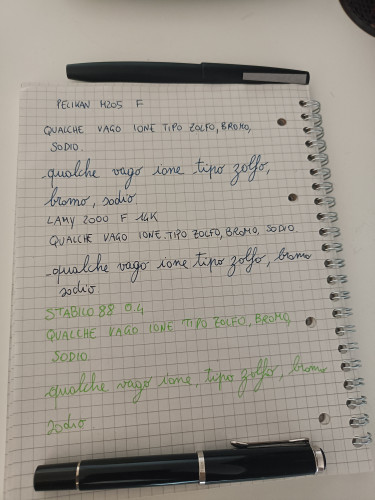 PELIKAN M205 F
QUALCHE VAGO IONE TIPO ZOLFO, BROMO,
SODIO.
qualche vago ione tipo zolfo,
bromo, sodio.
LAMY 2000 F 14K
QUALCHE VAGO IONE TIPO ZOLFO, BROMO, SODIO.
qualche vago ione tipo zolfo, bromo
sodio
STABILO 88 0.4
QUALCHE VAGO IONE TIPO ZOLFO, BROMO,
SODIO
qualche vago ione tipo zolfo, bromo
sodio